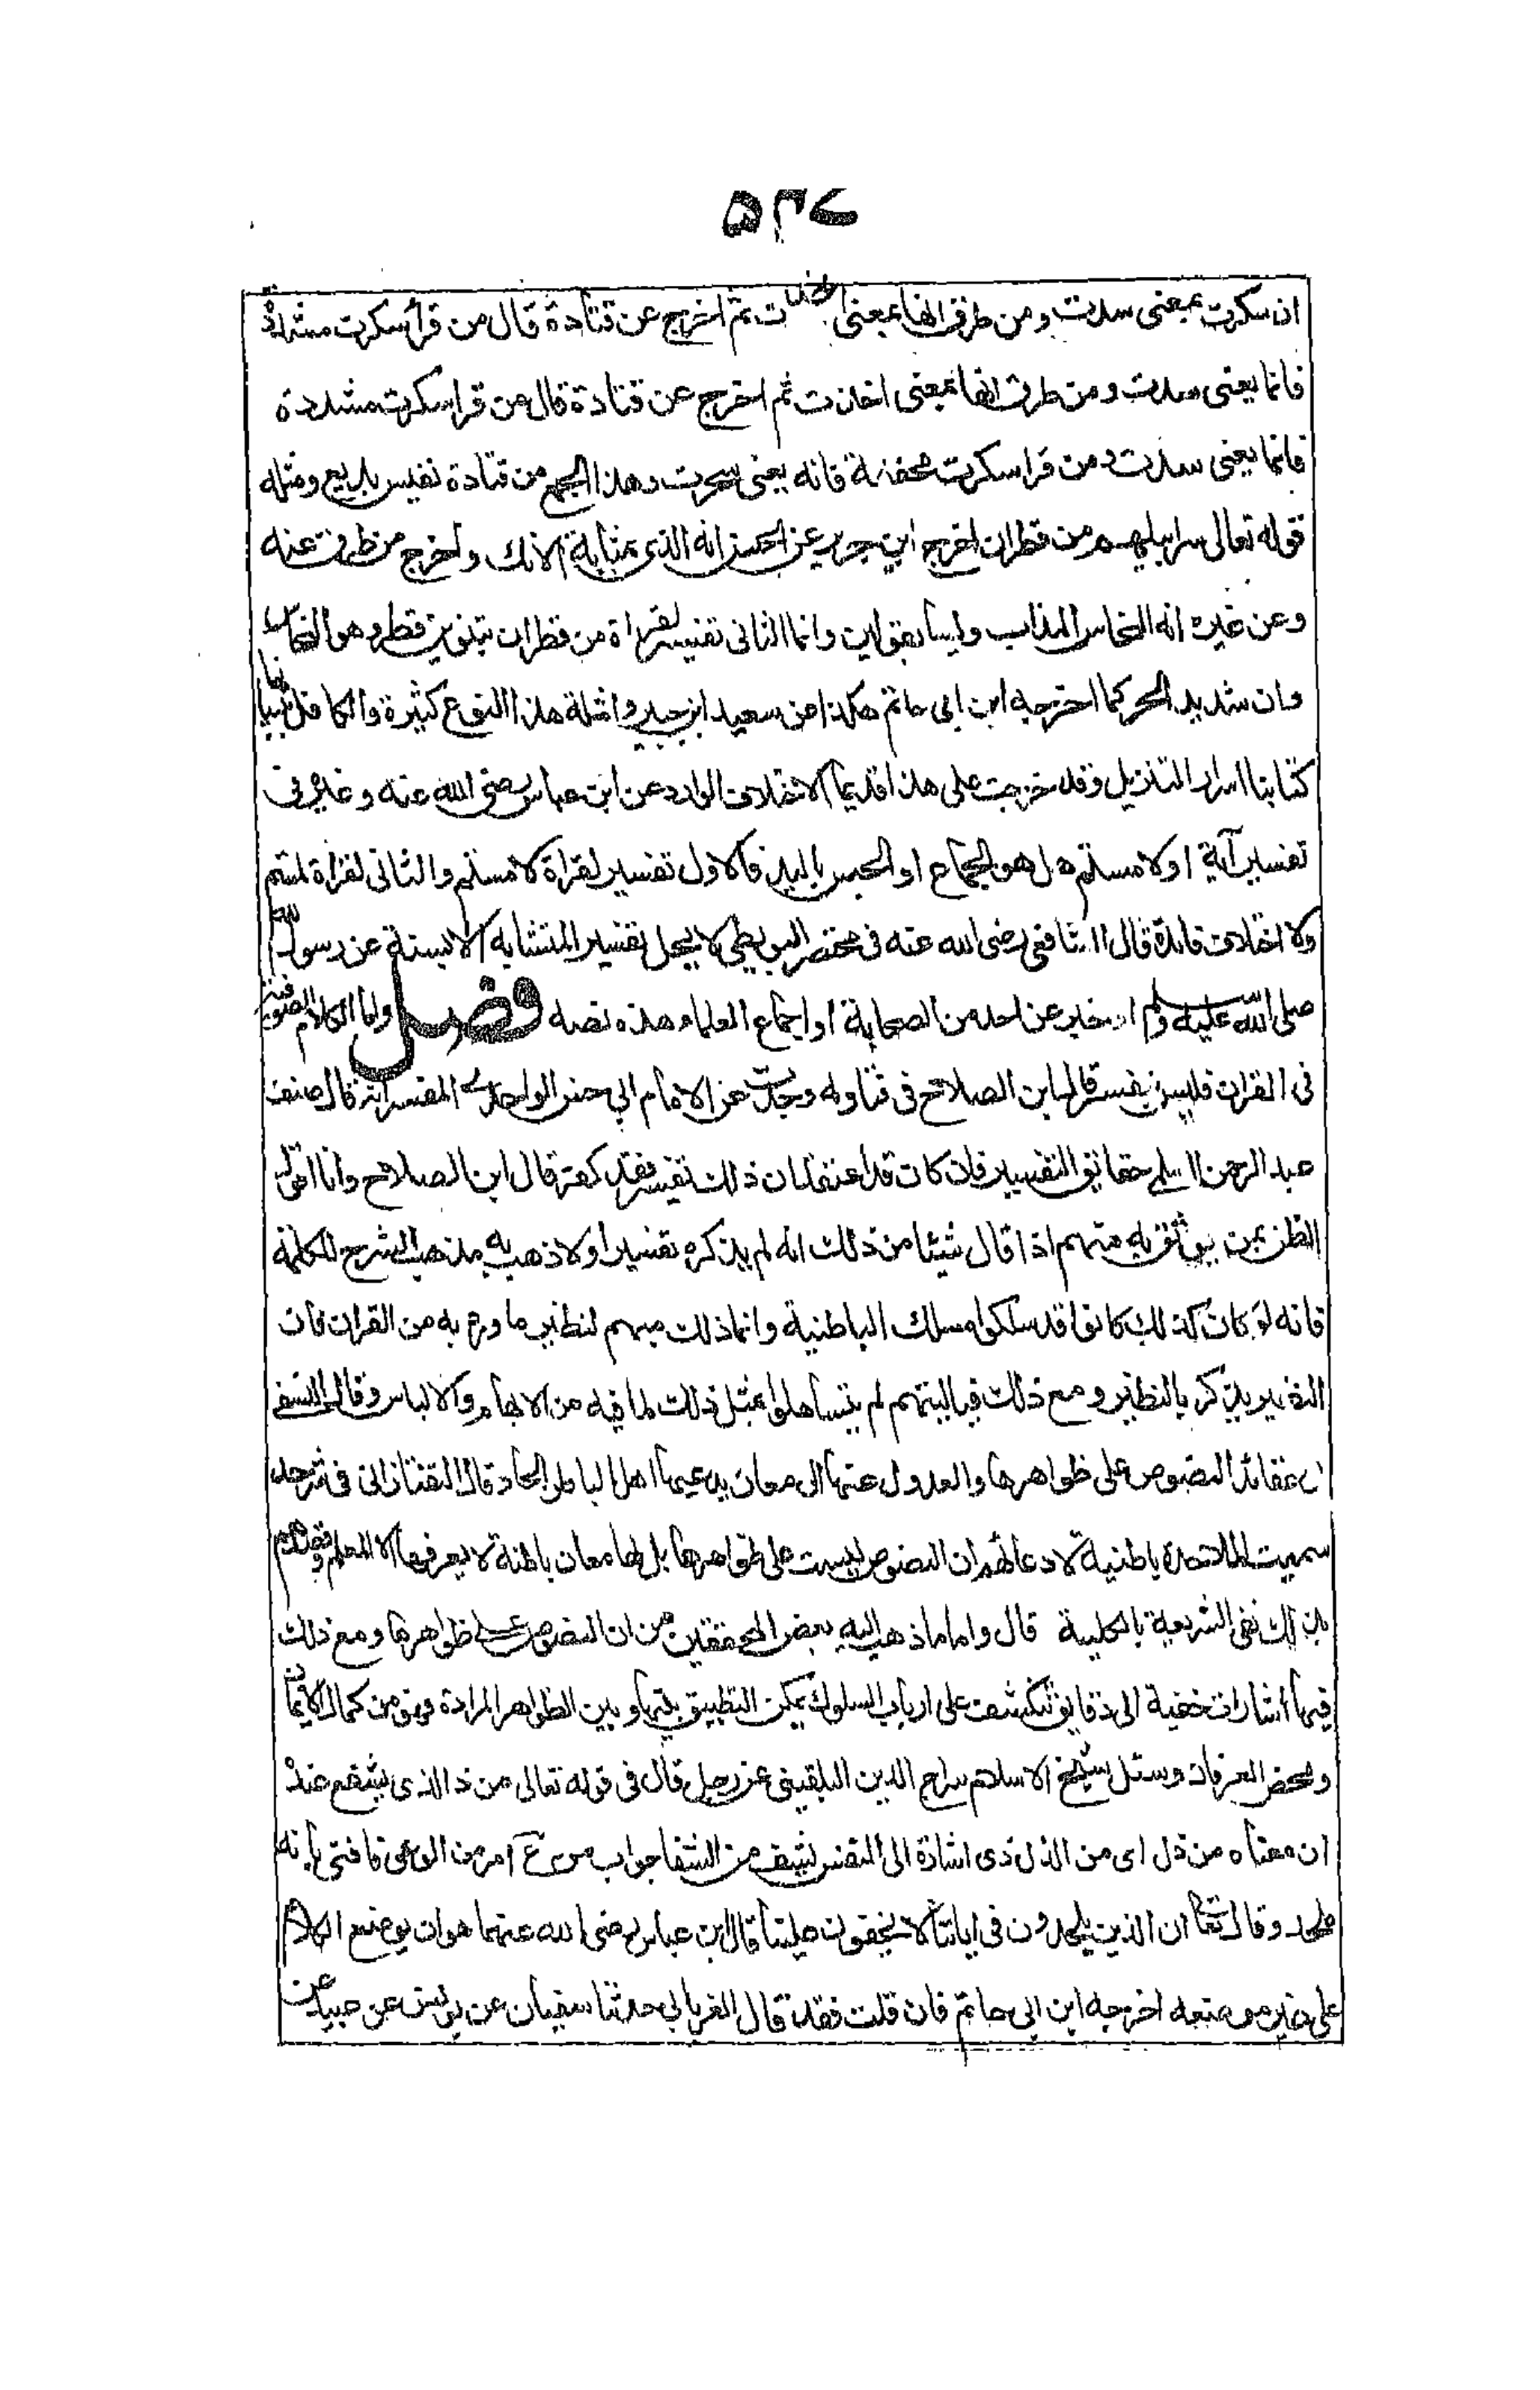 ۵۳۷
ان سكرت بمعنى سدت ومن طرق انها بمعنى اخذت ثم اخرج عن قتادة قال من قرأ سكرت مشددة
فانما يعنى سدت ومن طرق انها بمعنى اخذت ثم اخرج عن قتادة قال من قرا سكرت مشددة
فانما يعنى سدت ومن قرا سكرت مخففة فانه يعنى سحرت وهذا الجمع من قتادة نفيس بديع ومثله
قوله تعالى سرابيلهم من قطران اخرج ابن جرير عن الحسن انه الذى تهنأ به الابل واخرج من طرق عنه
وعن غيره انه النحاس المذاب وليسا بقولين وانما الثانى تفسير لقراة من قطران بتنوين قطر وهو النحاس
وان شديد الحر كما اخرجه ابن ابى حاتم هكذا عن سعيد ابن جبير وامثلة هذا النوع كثيرة والكافل ببيانها
كتابنا اسرار التنزيل وقد خرجت على هذا قديما الاختلاف الوارد عن ابن عباس رضى الله عنه وغيره فى
تفسير آية او لامستم هل هو الجماع او الجس باليد فالاول تفسير لقراة لامستم والثانى لقراة لمستم
ولا اختلاف فائدة قال الشافعى رضى الله عنه فى مختصر البويطى لا يحل تفسير المتشابه الا بسنة عن رسول الله
صلى الله عليه وسلم او خبر عن احد من الصحابة او اجماع العلماء هذه نصه فصل واما الكلام الصوفية
فى القران فليس بتفسير قال ابن الصلاح فى فتاوله وجدت عن الامام ابي حسن الواحدى المفسر انه قال صنف
عبد الرحمن السلمي حقائق التفسير فان كان قد اعتقد ان ذلك تفسير فقد كفر قال ابن الصلاح وانا اقول
الظن بمن يوثق به منهم اذا قال شيئا من ذلك انه لم يذكره تفسيرا ولا ذهب به مذهب الشرح للكلمة
فانه لو كان كذلك كانوا قد سلكوا مسلك الباطنية وانما ذلك منهم لنظير ما ورد به من القران فان
النظير يذكر بالنظير ومع ذلك فياليتهم لم يتساهلوا بمثل ذلك لما فيه من الابهام والالباس وقال النسفى
فى عقائد النصوص على ظواهرها والعدول عنها الى معان يدعيها اهل الباطل الحاد قال التفتازانى فى شرحه
سميت الملاحدة باطنية لادعائهم ان النصوص ليست على ظواهرها بل لها معان باطنة لا يعرفها الا المعلم وقصدهم
بذلك نفى الشريعة بالكلية قال واما ما ذهب اليه بعض المحققين من ان النصوص على ظواهرها ومع ذلك
فيها اشارات خفية الى دقايق تنكشف على ارباب السلوك يمكن التطبيق بينها وبين الظواهر المرادة فهو من كمال الايمان
ومحض العرفان وسئل شيخ الاسلام سراج الدين البلقينى عن رجل قال فى قوله تعالى من ذا الذى يشفع عنده
ان معناه من ذل اى من الذل ذى اشارة الى النفس يشف من الشفا جواب من ع امر من الوعى فافتى بانه
ملحد وقال تعالى ان الذين يلحدون فى اياتنا لا يخفون علينا قال ابن عباس رضى الله عنهما هو ان يوضع الكلام
على غير موضعه اخرجه ابن ابى حاتم فان قلت فقد قال الفريابي حدثنا سفيان عن يونس عن